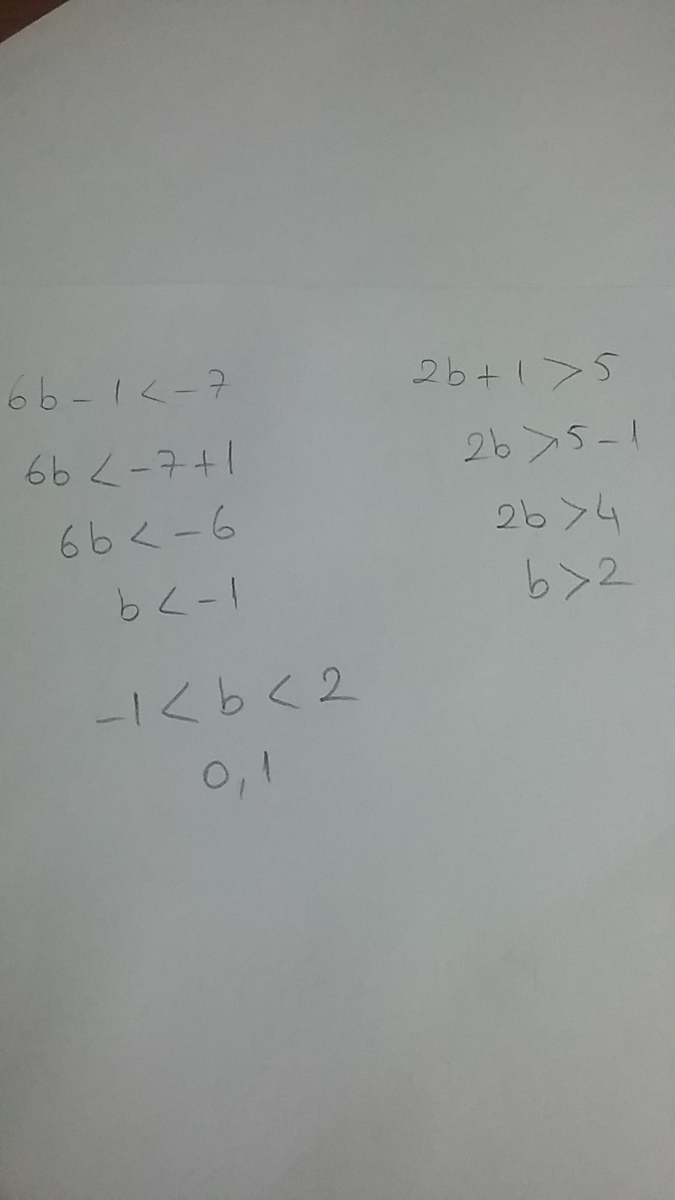 6b - 1 < -7
6b < -7 + 1
6b < -6
b < -1
2b + 1 > 5
2b > 5 - 1
2b > 4
b > 2
-1 < b < 2
0, 1